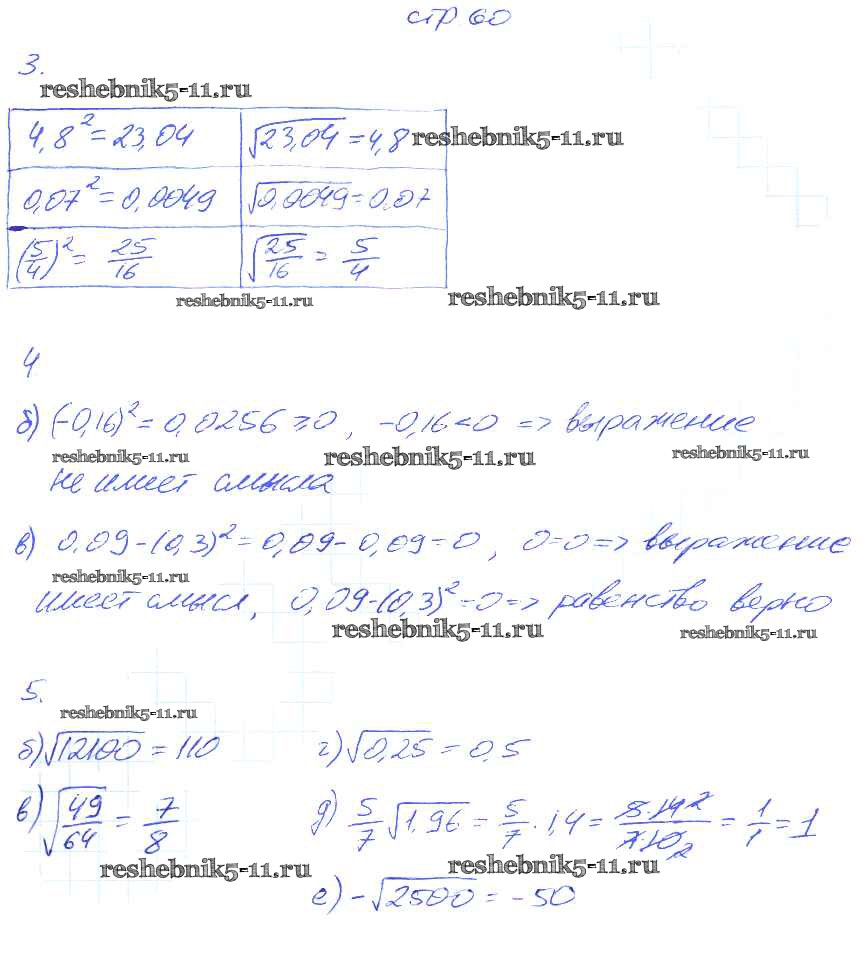 стр 60
3.
reshebnik5-11.ru
4,8² = 23,04 √23,04 = 4,8 reshebnik5-11.ru
0,07² = 0,0049 √0,0049 = 0,07
(5/4)² = 25/16 √25/16 = 5/4
reshebnik5-11.ru reshebnik5-11.ru
4
б) (-0,16)² = 0,0256 ≥ 0, -0,16 < 0 => выражение
reshebnik5-11.ru reshebnik5-11.ru reshebnik5-11.ru
не имеет смысла
в) 0,09-(0,3)² = 0,09-0,09=0, 0=0 => выражение
reshebnik5-11.ru
имеет смысл, 0,09-(0,3)²=0 => равенство верно
reshebnik5-11.ru reshebnik5-11.ru
5.
reshebnik5-11.ru
б) √12100 = 110 г) √0,25 = 0,5
в) √49/64 = 7/8 д) 5/7 √1,96 = 5/7 · 1,4 = 5·14 2/7·10 2 = 1/1 = 1
reshebnik5-11.ru reshebnik5-11.ru
е) -√2500 = -50